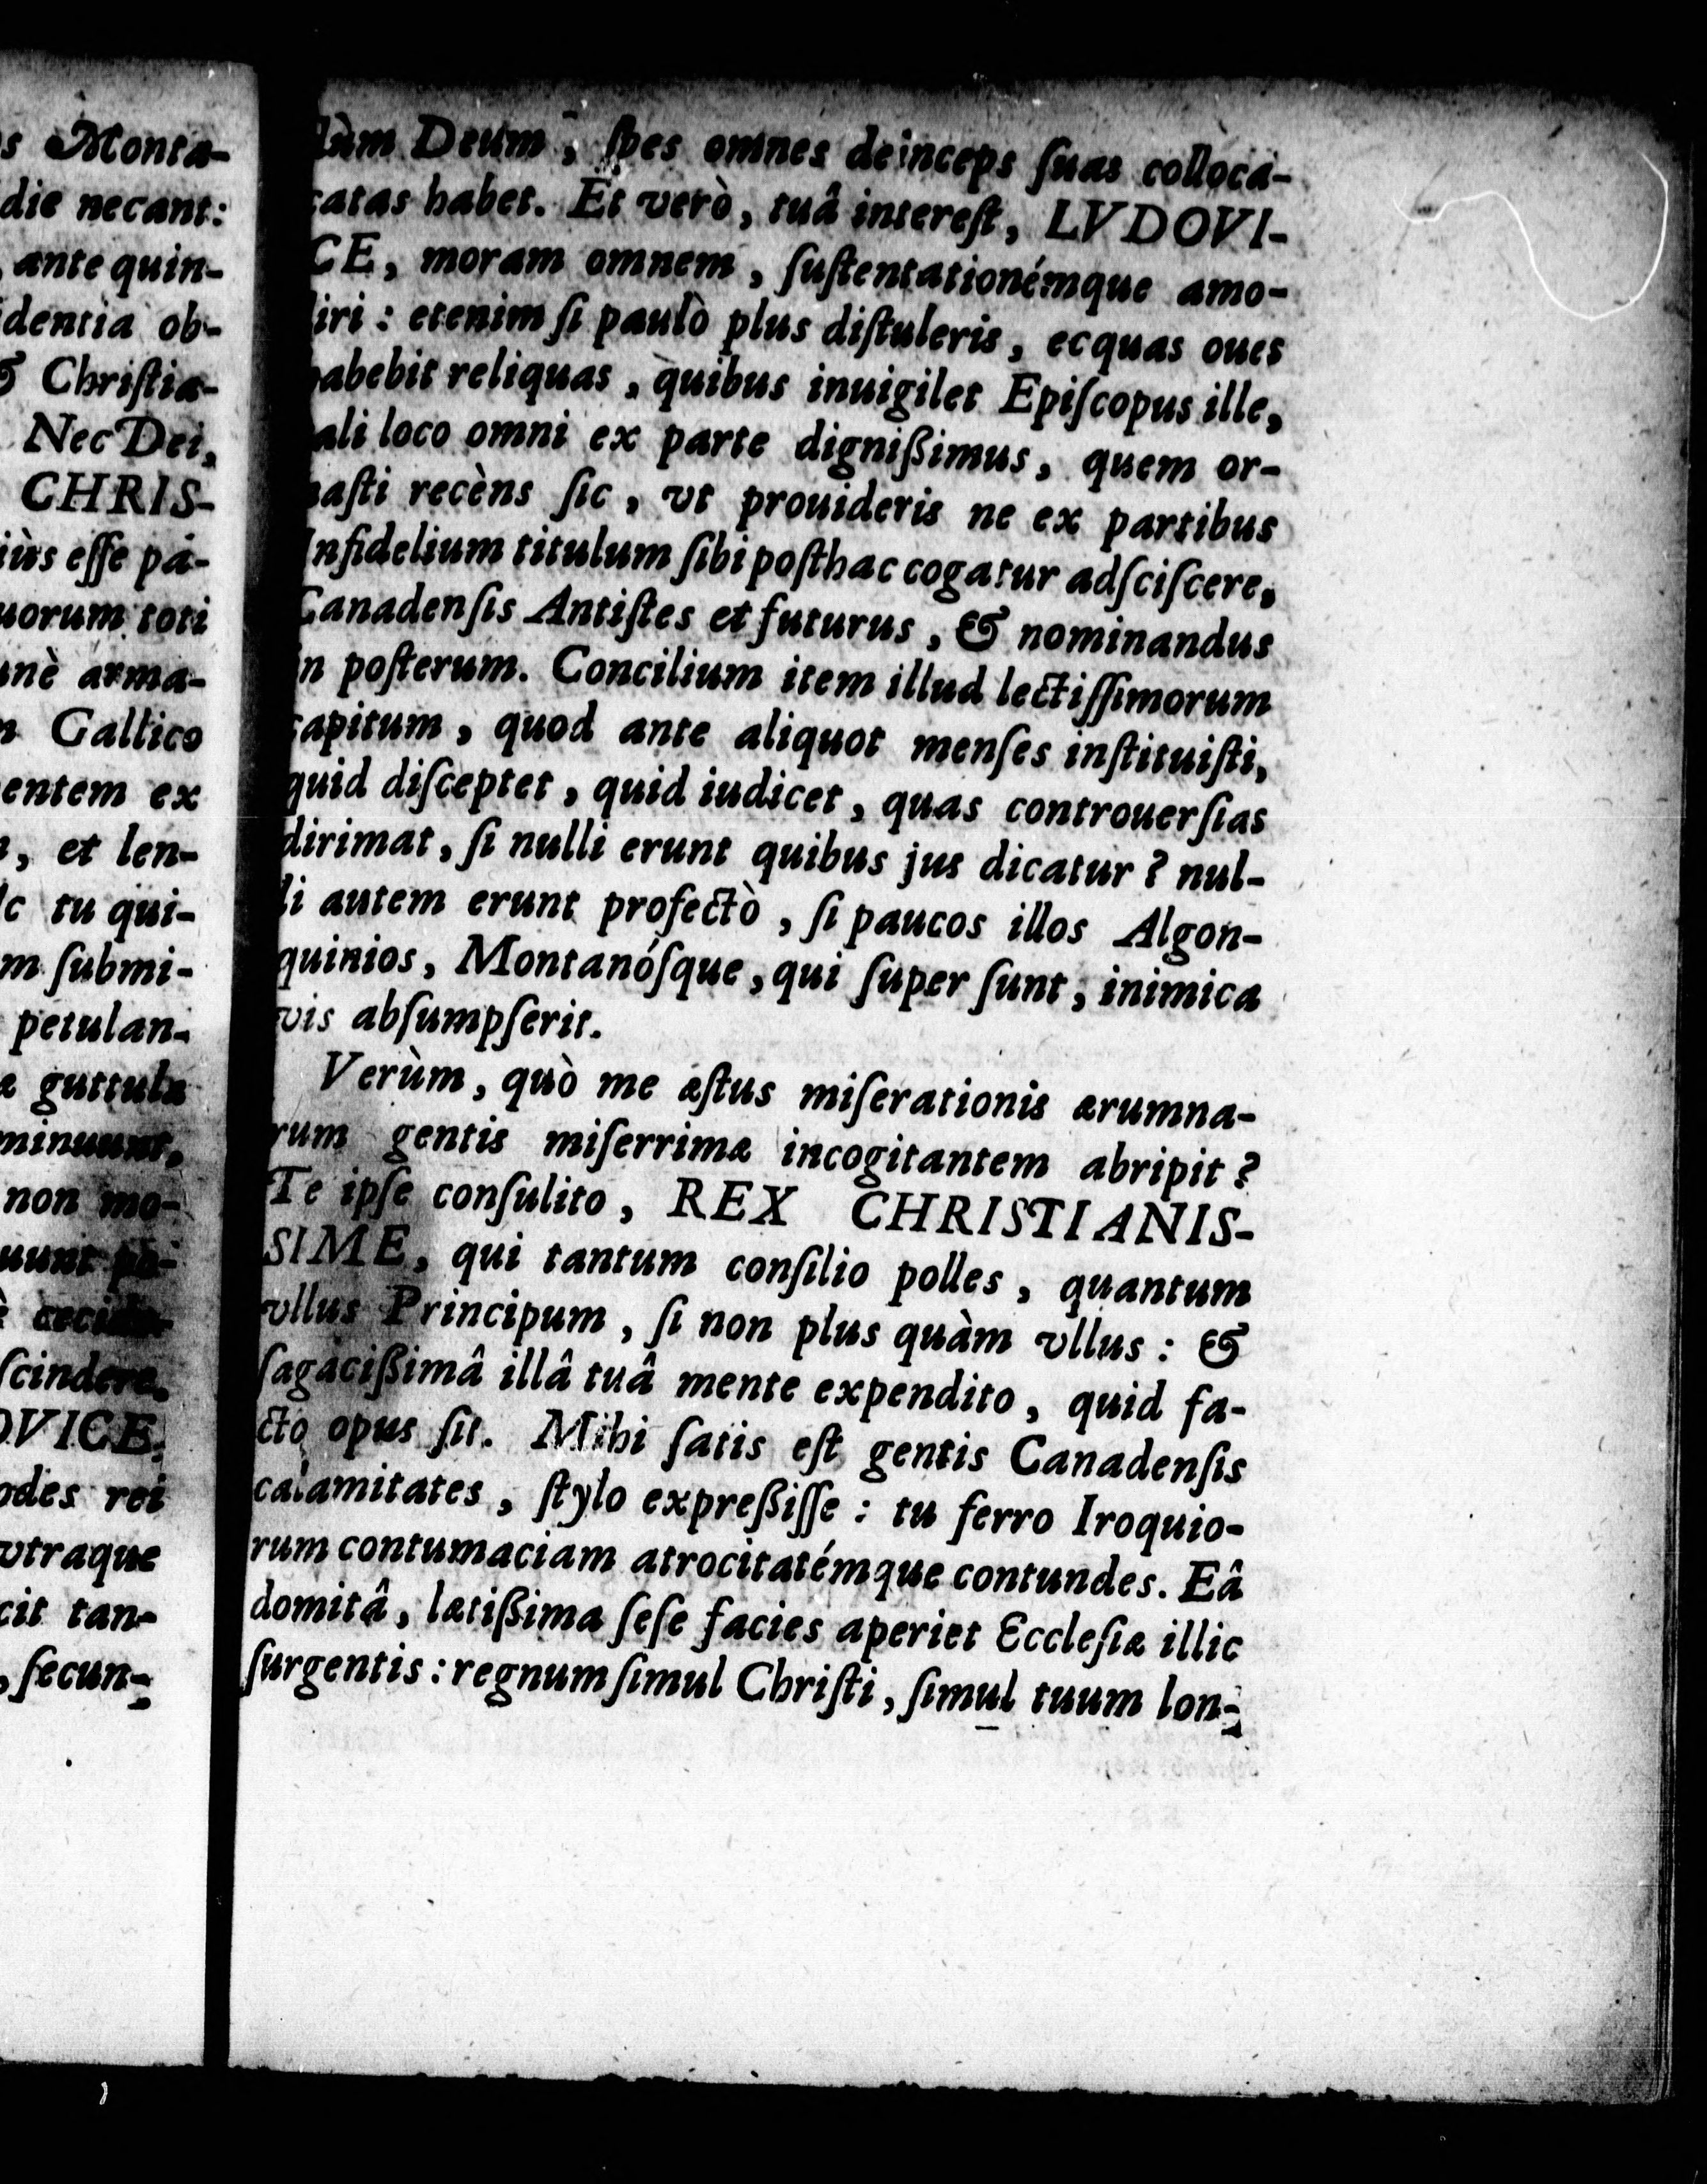 s Monta-
die necant:
ante quin-
dentia ob-
& Christia-
Nec Dei,
CHRIS-
iùs esse pa-
uorum toti
unè arma-
n Gallico
entem ex
, et len-
c tu qui-
m submi-
petulan-
æ guttulæ
minuunt,
non mo-
uunt
scindere.
OVICE,
odes rei
vtraque
cit tan-
, secun-
lùm Deum, spes omnes deinceps suas colloca-
catas habet. Et verò, tuâ interest, LVDOVI-
CE, moram omnem, sustentationémque amo-
liri: etenim si paulò plus distuleris, ecquas oues
habebit reliquas, quibus inuigilet Episcopus ille,
tali loco omni ex parte dignißimus, quem or-
nasti recèns sic, vt prouideris ne ex partibus
Infidelium titulum sibi posthac cogatur adsciscere,
Canadensis Antistes et futurus, & nominandus
in posterum. Concilium item illud lectissimorum
capitum, quod ante aliquot menses instituisti,
quid disceptet, quid iudicet, quas controuersias
dirimat, si nulli erunt quibus jus dicatur? nul-
li autem erunt profectò, si paucos illos Algon-
quinios, Montanósque, qui super sunt, inimica
vis absumpserit.
Verùm, quò me æstus miserationis ærumna-
rum gentis miserrimæ incogitantem abripit?
Te ipse consulito, REX CHRISTIANIS-
SIME, qui tantum consilio polles, quantum
vllus Principum, si non plus quàm vllus: &
sagacißimâ illâ tuâ mente expendito, quid fa-
cto opus sit. Mihi satis est gentis Canadensis
calamitates, stylo expreßisse: tu ferro Iroquio-
rum contumaciam atrocitatémque contundes. Eâ
domitâ, lætißima sese facies aperiet Ecclesiæ illic
surgentis: regnum simul Christi, simul tuum lon-